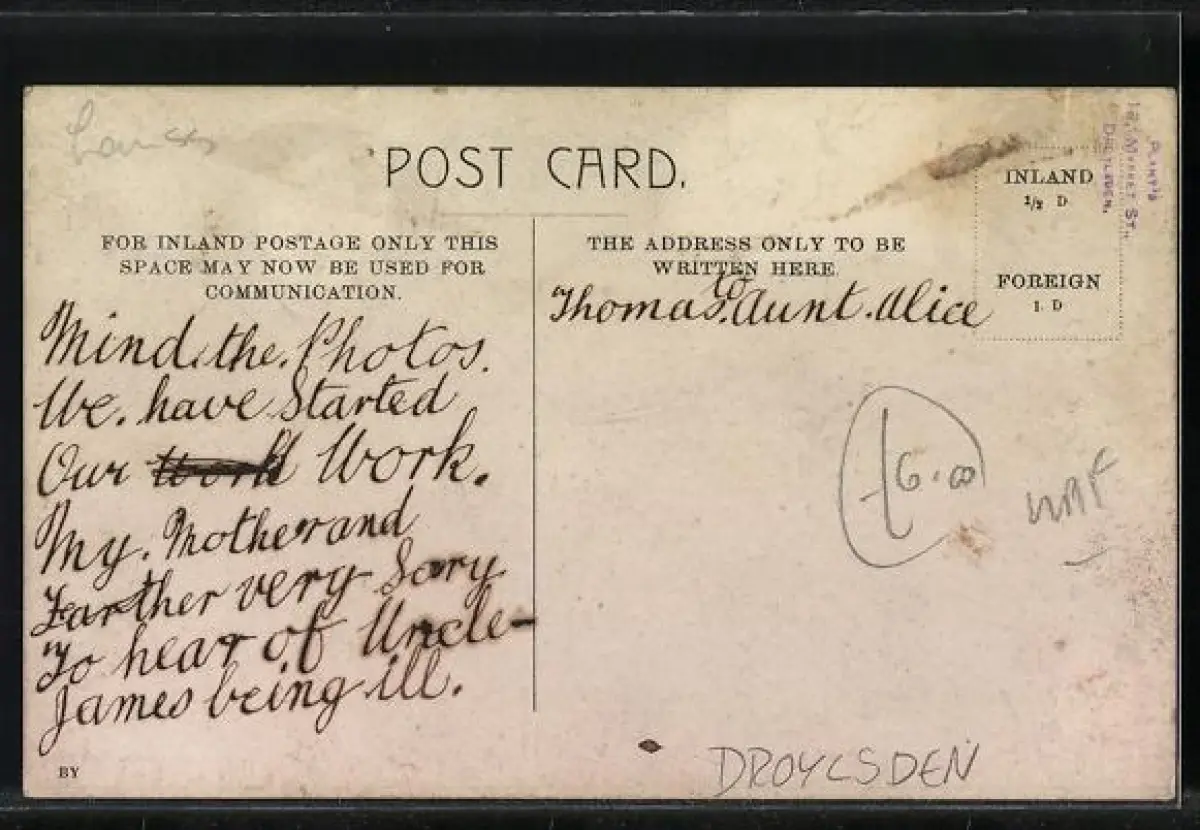 POST CARD.
INLAND
1/2 D
FOREIGN
1 D
12, MARKET ST.,
DROYLSDEN.
FOR INLAND POSTAGE ONLY THIS
SPACE MAY NOW BE USED FOR
COMMUNICATION.
THE ADDRESS ONLY TO BE
WRITTEN HERE.
to
Thomas. Aunt. Alice
Mind. the. Photos.
We. have Started
Our Work.
My. Mother and
Farther very Sory
To hear of Uncle-
James being ill.
£6.00
DROYLSDEN
BY